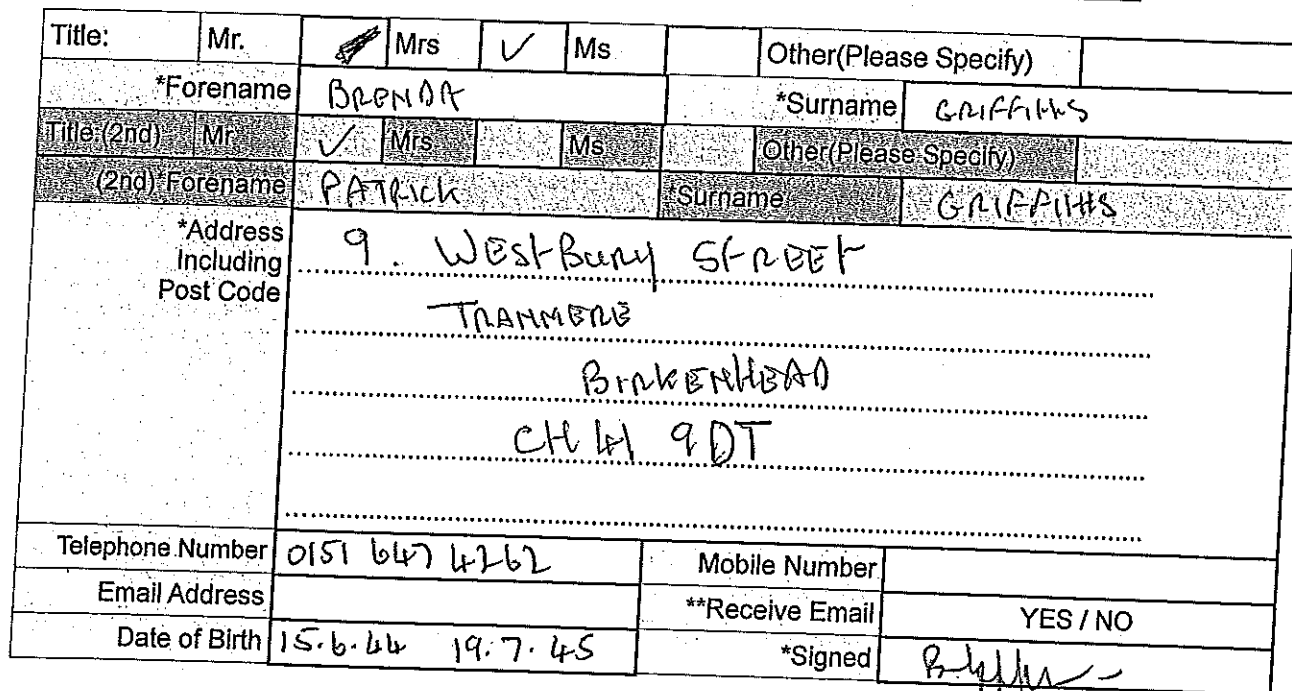 Title: Mr. Mrs ✓ Ms Other(Please Specify)
*Forename BRENDA *Surname GRIFFITHS
Title:(2nd) Mr. ✓ Mrs Ms Other(Please Specify)
(2nd)*Forename PATRICK *Surname GRIFFITHS
*Address Including Post Code 9. WESTBURY STREET
TRANMERE
BIRKENHEAD
CH41 9DT
Telephone Number 0151 647 4262 Mobile Number
Email Address **Receive Email YES / NO
Date of Birth 15.6.44 19.7.45 *Signed